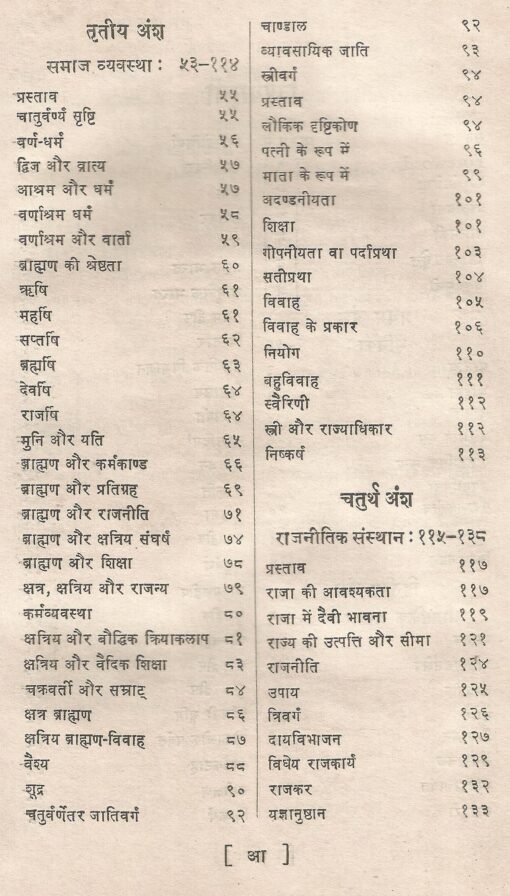 तृतीय अंश
समाज व्यवस्था : ५३-११४
प्रस्ताव ५५
चातुर्वर्ण्य सृष्टि ५५
वर्ण-धर्म ५६
द्विज और व्रात्य ५७
आश्रम और धर्म ५७
वर्णाश्रम धर्म ५८
वर्णाश्रम और वार्ता ५९
ब्राह्मण की श्रेष्ठता ६०
ऋषि ६१
महर्षि ६१
सप्तर्षि ६२
ब्रह्मर्षि ६३
देवर्षि ६४
राजर्षि ६४
मुनि और यति ६५
ब्राह्मण और कर्मकाण्ड ६६
ब्राह्मण और प्रतिग्रह ६९
ब्राह्मण और राजनीति ७१
ब्राह्मण और क्षत्रिय संघर्ष ७४
ब्राह्मण और शिक्षा ७८
क्षत्र, क्षत्रिय और राजन्य ७९
कर्मव्यवस्था ८०
क्षत्रिय और बौद्धिक क्रियाकलाप ८१
क्षत्रिय और वैदिक शिक्षा ८३
चक्रवर्ती और सम्राट् ८४
क्षत्र ब्राह्मण ८६
क्षत्रिय ब्राह्मण-विवाह ८७
वैश्य ८८
शूद्र ९०
चतुर्वर्णेतर जातिवर्ग ९२
चाण्डाल ९२
व्यावसायिक जाति ९३
स्त्रीवर्ग ९४
प्रस्ताव ९४
लौकिक दृष्टिकोण ९४
पत्नी के रूप में ९६
माता के रूप में ९९
अदण्डनीयता १०१
शिक्षा १०१
गोपनीयता वा पर्दाप्रथा १०३
सतीप्रथा १०४
विवाह १०५
विवाह के प्रकार १०६
नियोग ११०
बहुविवाह १११
स्वैरिणी ११२
स्त्री और राज्याधिकार ११२
निष्कर्ष ११३
चतुर्थ अंश
राजनीतिक संस्थान : ११५-१३८
प्रस्ताव ११७
राजा की आवश्यकता ११७
राजा में दैवी भावना ११९
राज्य की उत्पत्ति और सीमा १२१
राजनीति १२४
उपाय १२५
त्रिवर्ग १२६
दायविभाजन १२७
विधेय राजकार्य १२९
राजकर १३२
यज्ञानुष्ठान १३३
[ आ ]